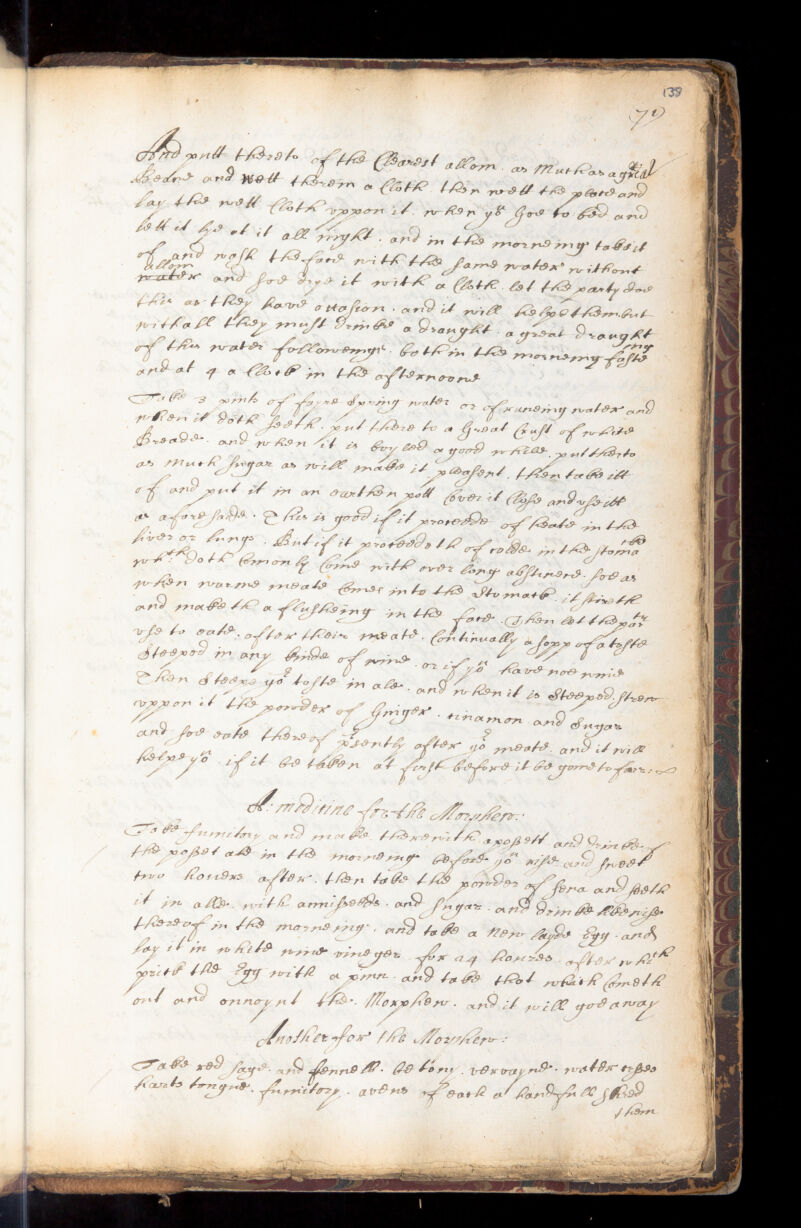 138
71
And putt thereto of the Clearest allom. as Much as a great
Beane and wett therein a Cloth then wett the place and
lay the wett Cloth uppon it. when yu goe to bed and
lett it lye at it all night. and in the morneing take it
of and wash the face with the same water without
allom
water and soe drye it with a Cloth. let the party doe
this as they have occasion. and it will helpe them but
withall they must drinke a draught. a great draught
of this water followeinge. both in the morneing fasteing
and at 4 a Clock in the afternoone
Take 3 pints of fayre Spring water or of runeing water and
when it doth seeth. put there to a Great Crust of white
Breade. and when it is boyled a good while. put therto
as much sugar as will make it pleasent. then take itt
of and put it in an earthen pott Cover it Close and use itt
as aforesaide. This is good if it proceede of heate in the
liver or lungs. But if it proceedeth of colde in the stomacke
wch doth Comonly Come with over long abstinenc. soe as
when warme meate Comes into the Stomack. it stireth
and maketh a flusheing in the face. Then let the party
use to eate. after their meate. Continually a sopp of a toste
Steeped in any kinde of wine. or if yu have noe wine
Then Steepe yor toste in ale. and when it is Steeped. strew
uppon it the powder of Ginger. cinamon and Sugar
and soe eate thereof psently after yor meate. and it will
helpe yu. if it be taken at first before it be gone to farr:
A: medicine for the Morphew:
Take fumitory and make therewith a possett and drinke of
the posset ale in the morneing before yu rise and sweet
two houers after. then take the powder of Sena and seeth
it in alle. with anniseeds. and sugar. and drinke likewise
thereof in the morneing. and take a New layde Egg. and
lay it in white wine vineger for 24 houres. after which
prick the Egg with a pinn. and take that which Cometh
out and annoynt the Morphew. and it will goe away
Another for the Morphew:
Take red sage. and fennell. betony. vervayne. water cresses
harts tongue. fumitory. avens of each a handfull Shred
them